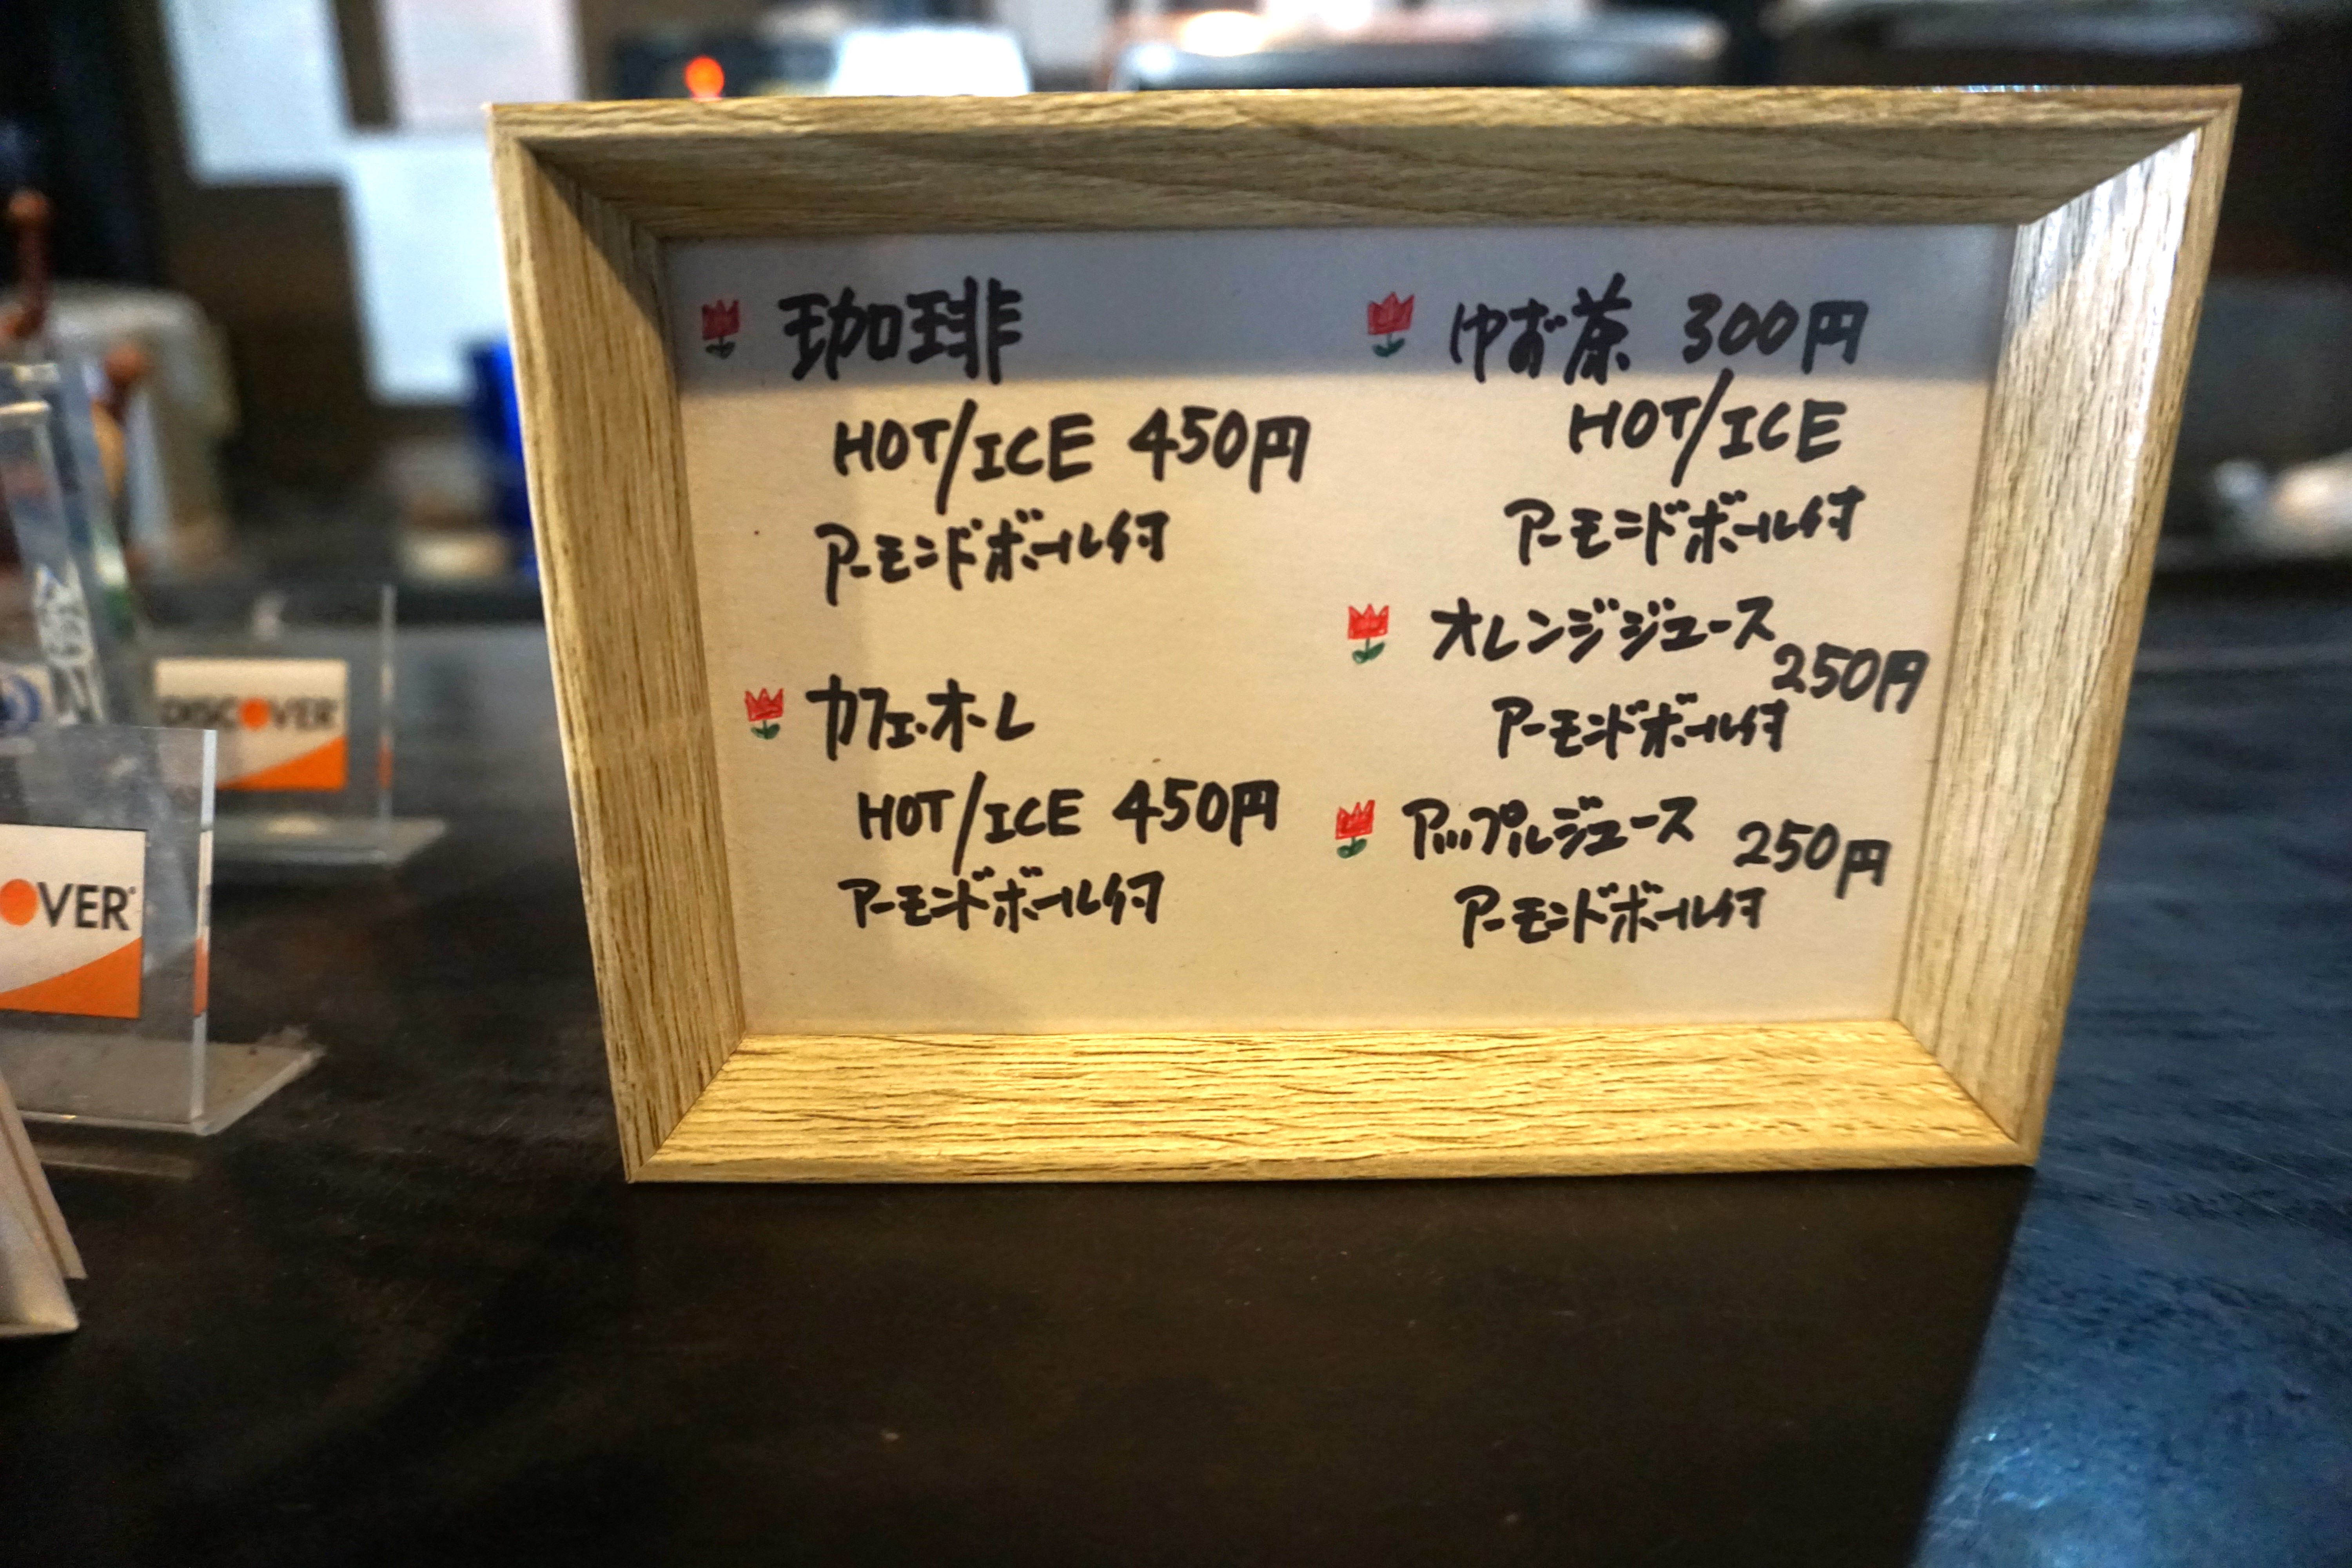 珈琲
HOT/ICE 450円
アーモンドボール付
カフェ・オ・レ
HOT/ICE 450円
アーモンドボール付
ゆず茶 300円
HOT/ICE
アーモンドボール付
オレンジジュース
250円
アーモンドボール付
アップルジュース 250円
アーモンドボール付
DISCOVER
OVER